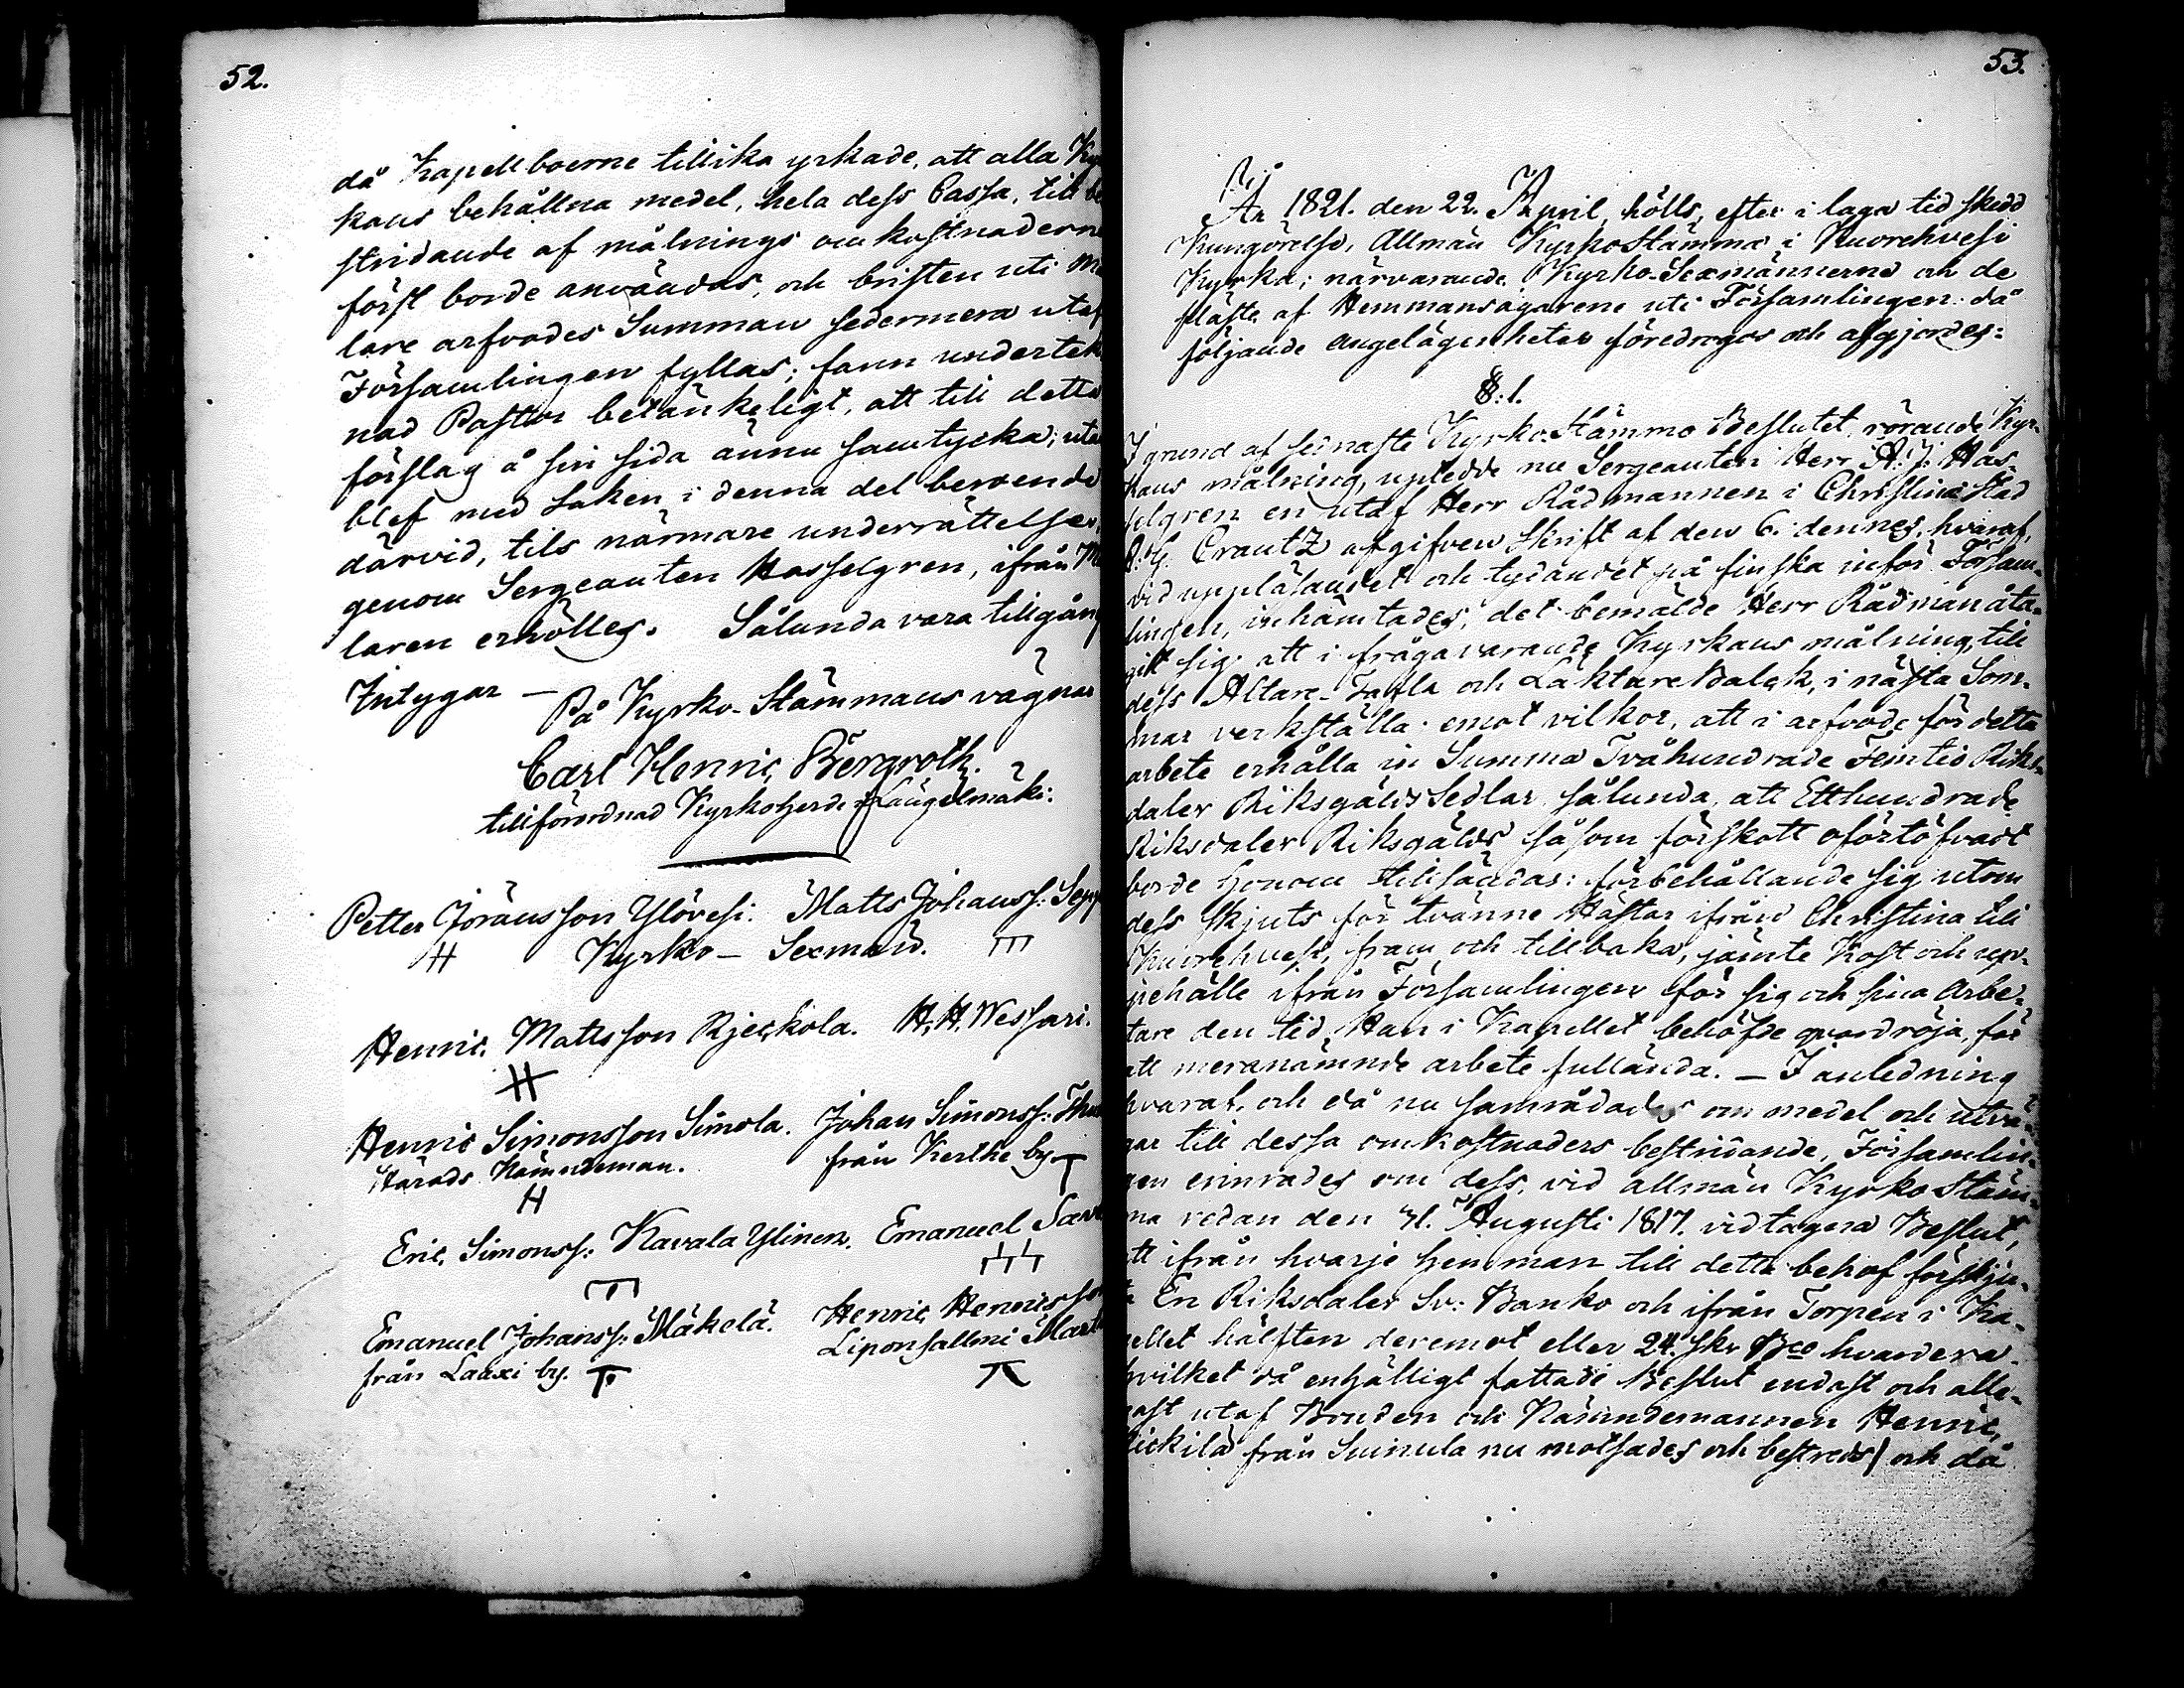 52.
då Kapellboerne tillika yrkade, att alla Kyr
kans behållna medel, hela dess Cassa, till be
stridande af målnings omkostnaderne
först borde användas, och bristen uti Må
lare arfvodes Summan sedermera utaf
Församlingen fyllas; fann underteck
nad Pastor betänkeligt, att till detta
förslag å sin sida ännu samtycka; utan
blef med saken i denna del beroende
därvid, tils närmare underrättelser,
genom Sergeanten Hasselgren, ifrån Må
laren erhölles. Sålunda vara tillgång
Intygar —
På Kyrko-Stämmans vägnar
Carl Henric Bergroth.
tillförordnad Kyrkoherde i Längelmäki.
Petter Jöransson Ylövesi. Matts Johanss: Sep
H Kyrko- Sexmän. m
Henric Mattsson Rjeckola. H. H. Wessari.
Henric Simonsson Simola. Johan Simonss:
Härads Nämndeman. från Kerthe by
H T
Eric Simonss: Kavala Ylinen. Emanuel
Emanuel Johanss: Mäkelä. Henric Henricsson
från Laaxi by. Liponsallmi
53.
År 1821. den 22. April, hölls, efter i laga tid skedd
Kungörelse, Allmän KyrkoStämma i Kuorehvesi
Kyrka; närvarande Kyrko-Sexmännerne och de
fläste af Hemmansägarene uti Församlingen: då
följande angelägenheter föredrogos och afgjordes:
§:1.
I grund af sednaste Kyrko-Stämmo Beslutet, rörande Kyr-
kans målning, upledde nu Sergeanten Herr A: J: Has-
selgren en utaf Herr Rådmannen i Christinæ Stad
Crantz afgifven Skrift af den 6. dennes, hvaraf,
vid uppläsandet och tydandet på finska inför Försam-
lingen, inhämtades, det bemälde Herr Rådman åta-
git sig, att i fråga varande Kyrkans målning, till
dess Altare-Tafla och Läktare Balck, i nästa Som-
mar verkställa: emot vilkor, att i arfvode för detta
arbete erhålla in Summa Tvåhundrade Femtio Riks-
daler Riksgälds Sedlar, sålunda, att Etthundrade
Riksdaler Riksgälds såsom förskott oförtöfvadt
borde Honom tillsändas: förbehållande sig utom
dess skjuts för tvänne Hästar ifrån Christina till
Kuorehvesi, fram och tillbaka, jämte Kost och up-
pehälle ifrån Församlingen för sig och sina Arbe-
tare den tid, Han i Kapellet behöfde qvardröja, för
att meranämnde arbete fullända. — I anledning
hvaraf, och då nu samrådades om medel och utvä-
gar till dessa omkostnaders bestridande, Församlin-
gen erinrades om dess, vid allmän Kyrko Stäm-
ma redan den 31. Augusti 1817. vidtagena Beslut,
att ifrån hvarje Hemman till detta behof förskju-
ta En Riksdaler Sv: Banko och ifrån Torpen i Ka-
pellet hälften deremot eller 24. sk: Bco hvardera.
hvilket då enhälligt fattade Beslut endast och alle-
nast utaf Bonden och Nämndemannen Henric
Rickilä från Suinula nu motsades och bestreds) och då